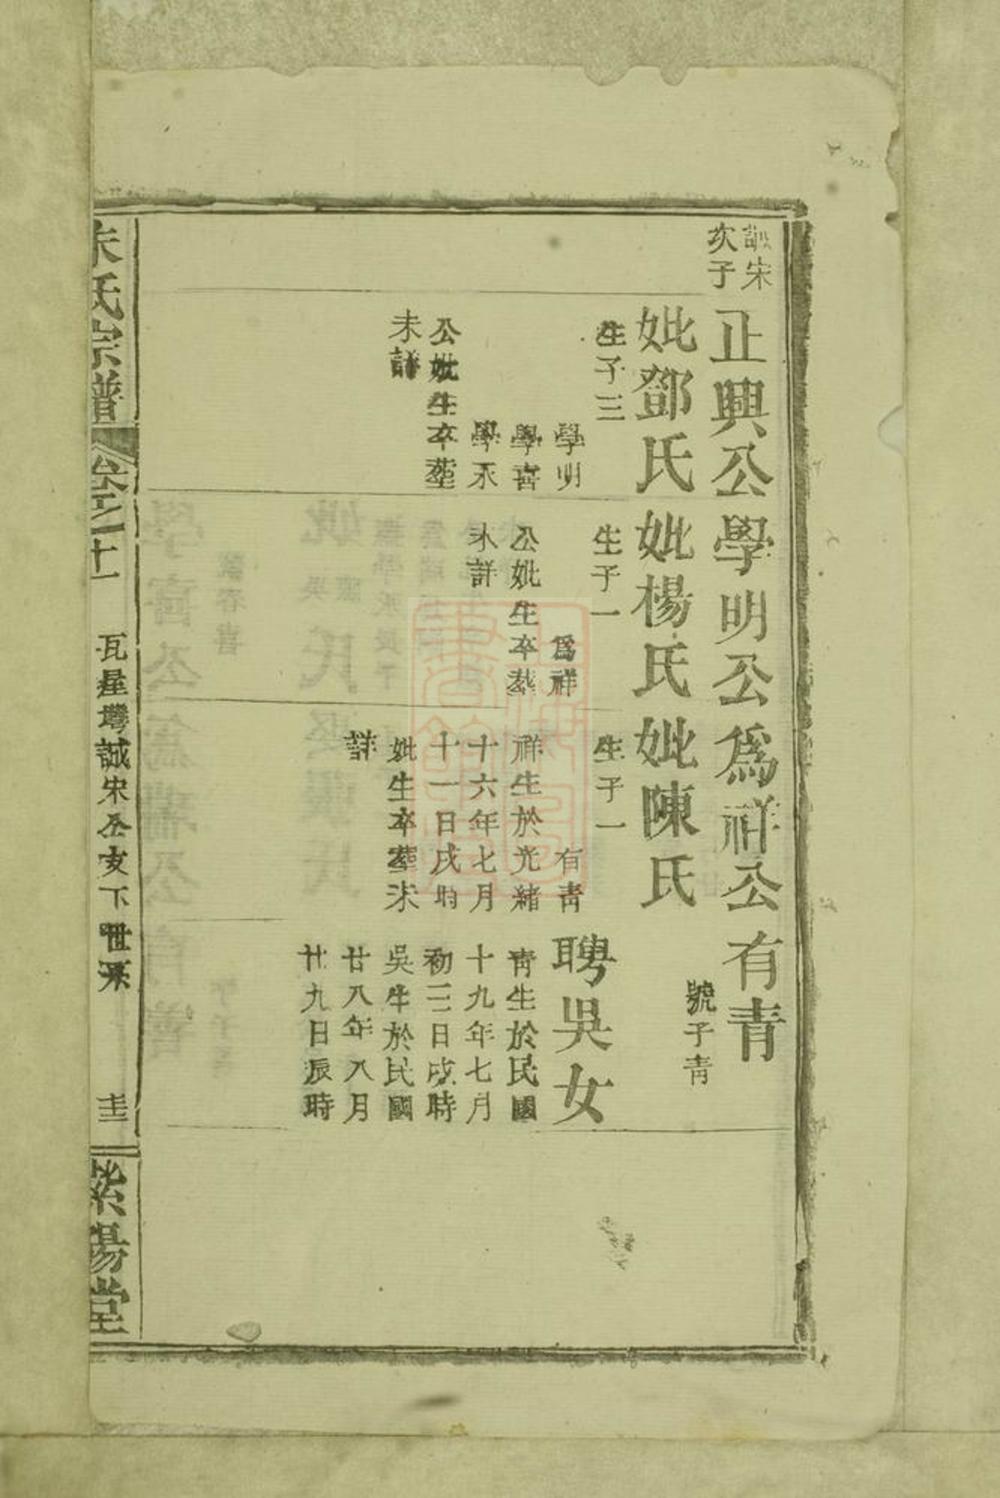 誠宋
次子
正興公
妣鄧氏
生子三
學明
學喜
學禾
公妣生卒塟
未詳
學明公
妣楊氏
生子一
為祥
公妣生卒塟
未詳
為祥公
妣陳氏
生子一
有青
祥生於光緒
十六年七月
十一日戌時
妣生卒塟未
詳
有青
號子青
聘吳女
青生於民國
十九年七月
初三日戌時
吳生於民國
廿八年八月
廿九日辰時
朱氏宗譜
卷之十一
瓦星塆誠宋公支下世系
圭
紫陽堂